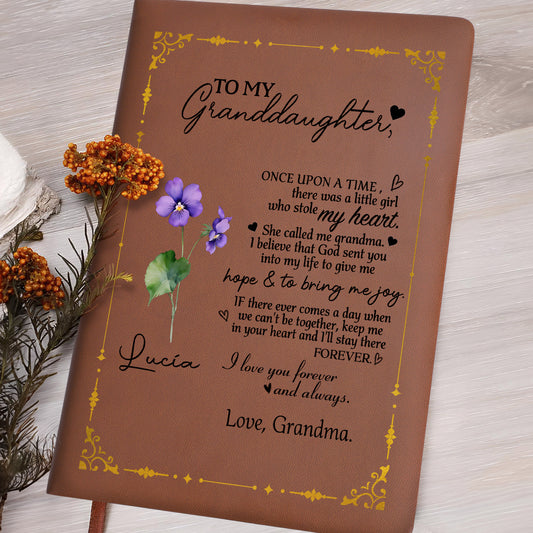 TO MY
Granddaughter,
ONCE UPON A TIME,
there was a little girl
who stole my heart.
She called me grandma.
I believe that God sent you
into my life to give me
hope & to bring me joy.
IF there ever comes a day when
we can't be together, keep me
in your heart and I'll stay there
FOREVER.
I love you forever
and always.
Love, Grandma.
Lucía